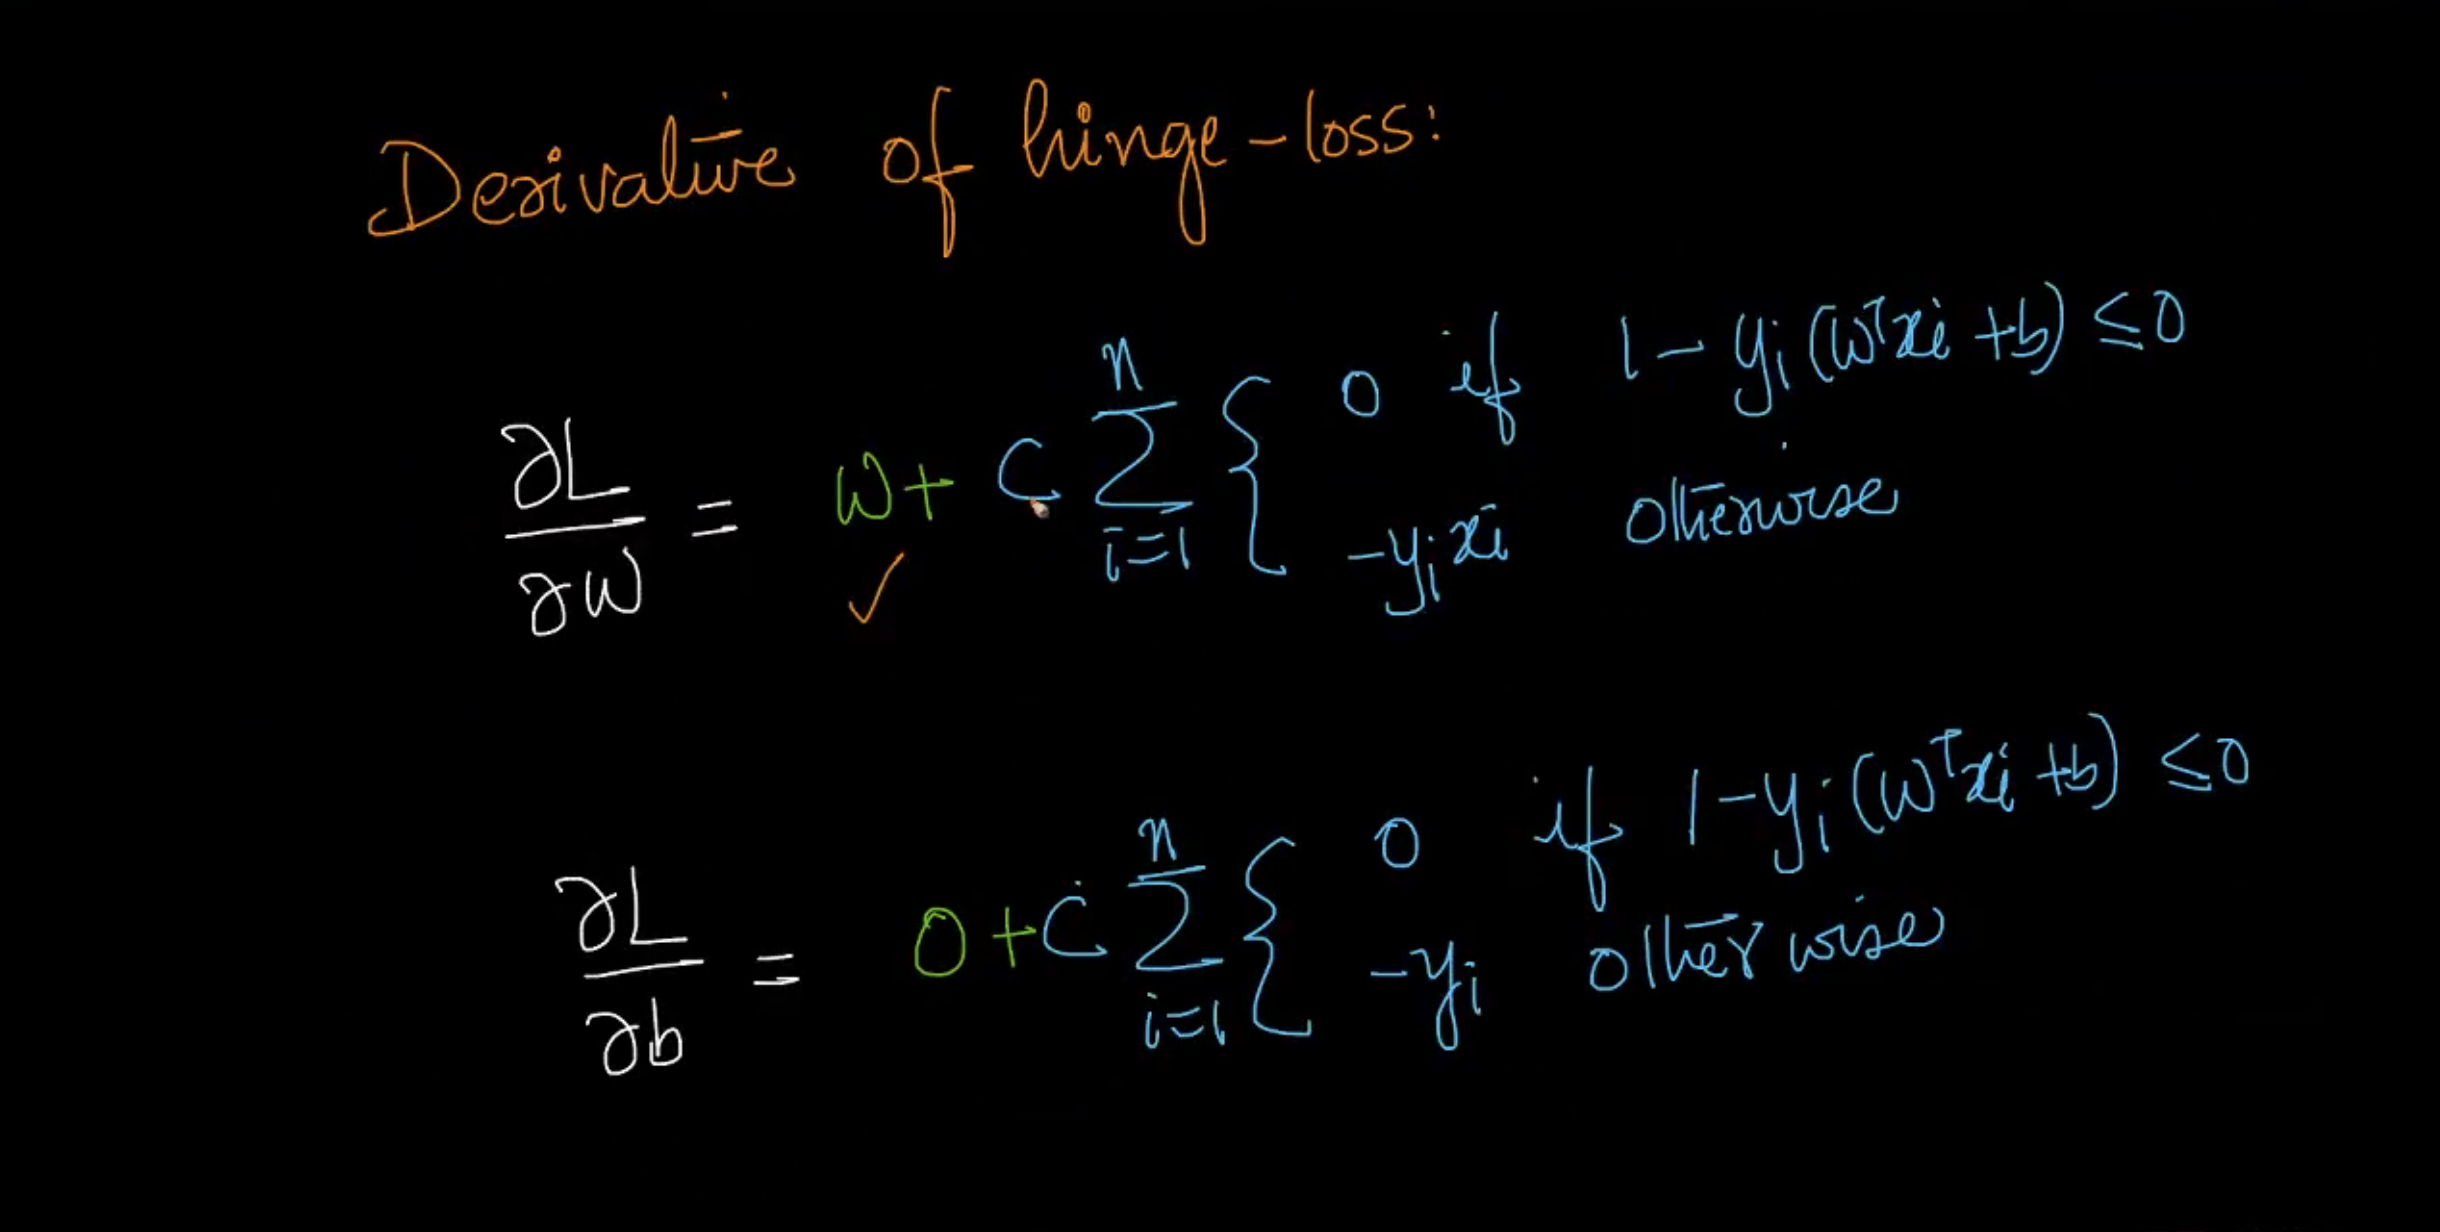 Derivative of hinge-loss:
∂L/∂w = w + C ∑_{i=1}^{n} { 0 if 1 - yi(wᵀxi + b) ≤ 0
-yi xi otherwise
∂L/∂b = 0 + C ∑_{i=1}^{n} { 0 if 1 - yi(wᵀxi + b) ≤ 0
-yi otherwise